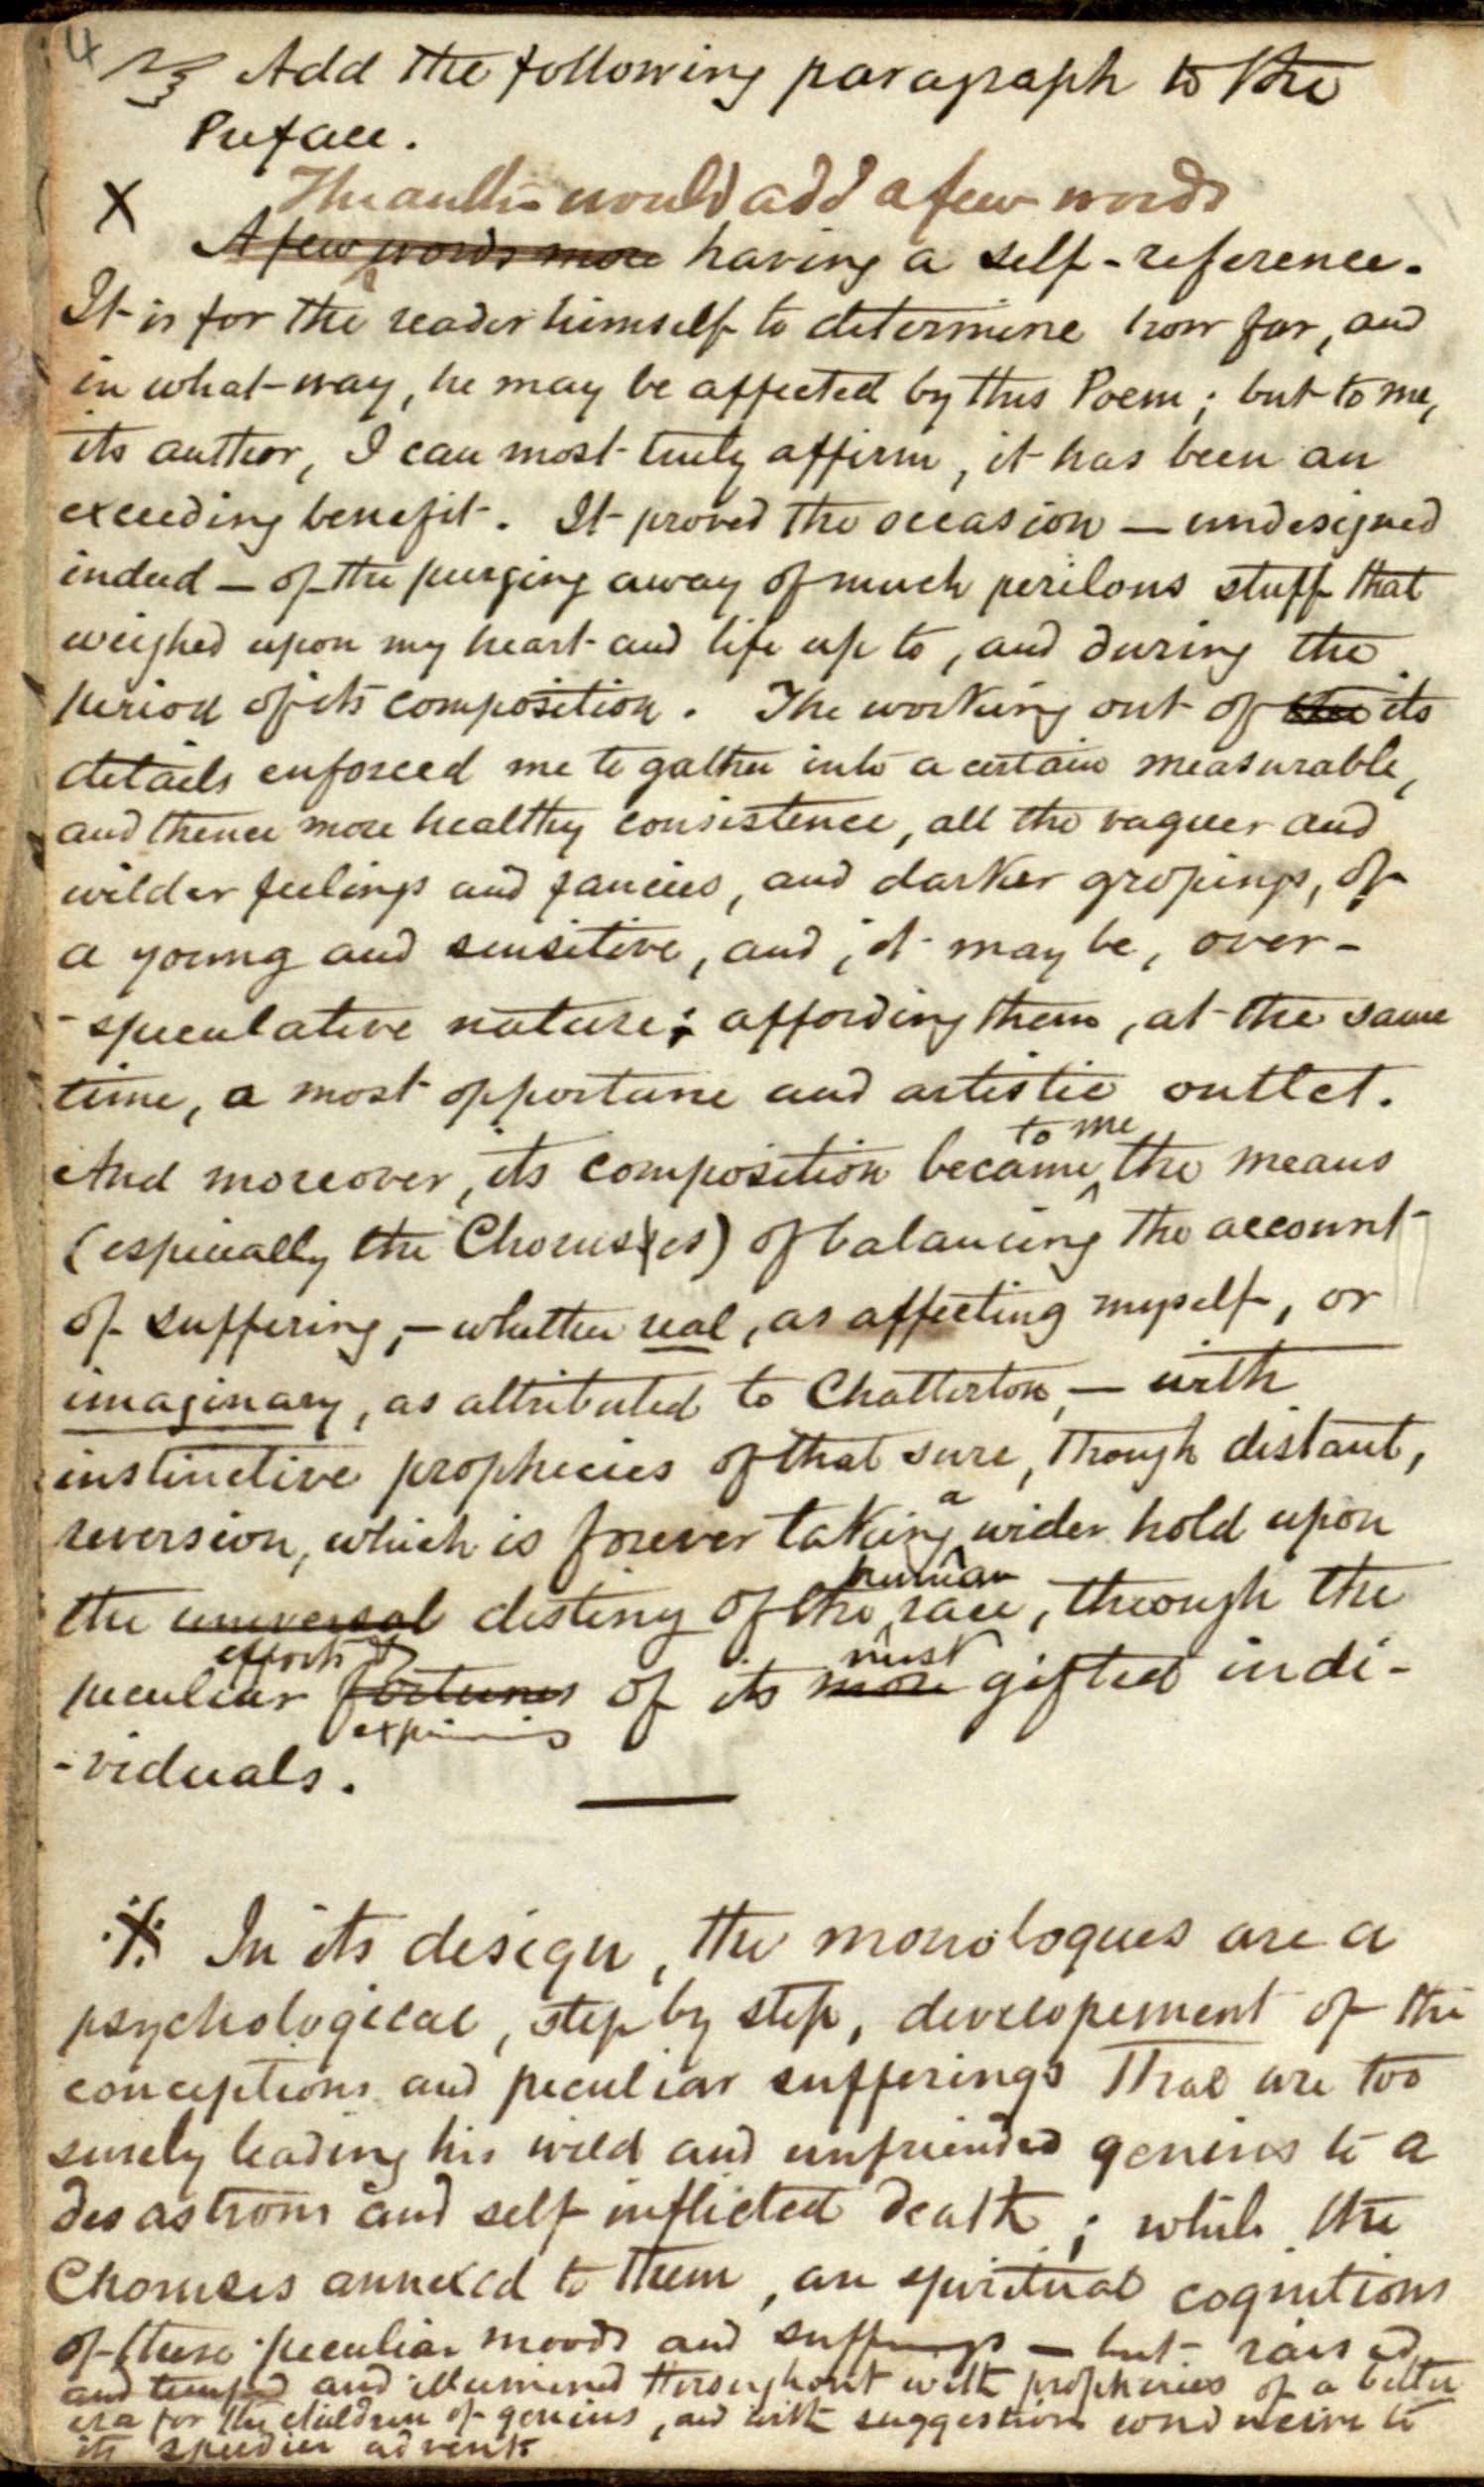 4
Add the following paragraph to the
Preface.
The author would add a few words
X
A few words more having a self-reference.
It is for the reader himself to determine how far, and
in what way, he may be affected by this Poem; but to me,
its author, I can most truly affirm, it has been an
exceeding benefit. It proved the occasion — undesigned
indeed — of the purging away of much perilous stuff that
weighed upon my heart and life up to, and during the
period of its composition. The working out of the its
details enforced me to gather into a certain measurable,
and thence more healthy consistence, all the vaguer and
wilder feelings and fancies, and darker gropings, of
a young and sensitive, and, it may be, over-
-speculative nature; affording them, at the same
time, a most opportune and artistic outlet.
to me
And moreover, its composition became ^ the means
(especially the Choruses) of balancing the account
of suffering, — whether real, as affecting myself, or
imaginary, as attributed to Chatterton, — with
instinctive prophecies of that sure, though distant,
a
reversion, which is forever taking ^ wider hold upon
human
the universal destiny of the ^ race, through the
efforts & most
peculiar fortunes of its more gifted indi-
-viduals.
In its design, the monologues are a
psychological, step by step, developement of the
conceptions and peculiar sufferings that are too
surely leading his wild and unfriended genius to a
desastrous and self inflicted death; while the
Choruses annexed to them, are spiritual cognitions
of these peculiar moods and sufferings — but raised
and and illumined throughout with prophecies of a better
era for the children of genius, and with suggestions conducive to
its speedier advent.